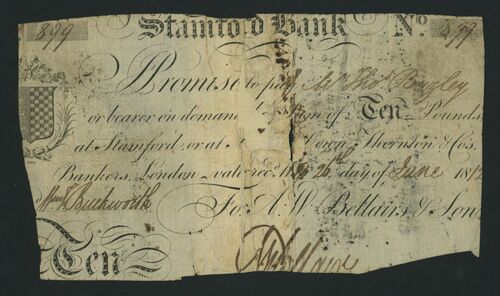 Stamford Bank No
899 899
I Promise to pay Mr Thos Bagley
or bearer on demand Sum of Ten Pounds
at Stamford or at Down, Thornton & Co's.
Bankers, London value recd. 26th day of June 181
Wm Buckworth For A. W. Bellairs & Son
Ten